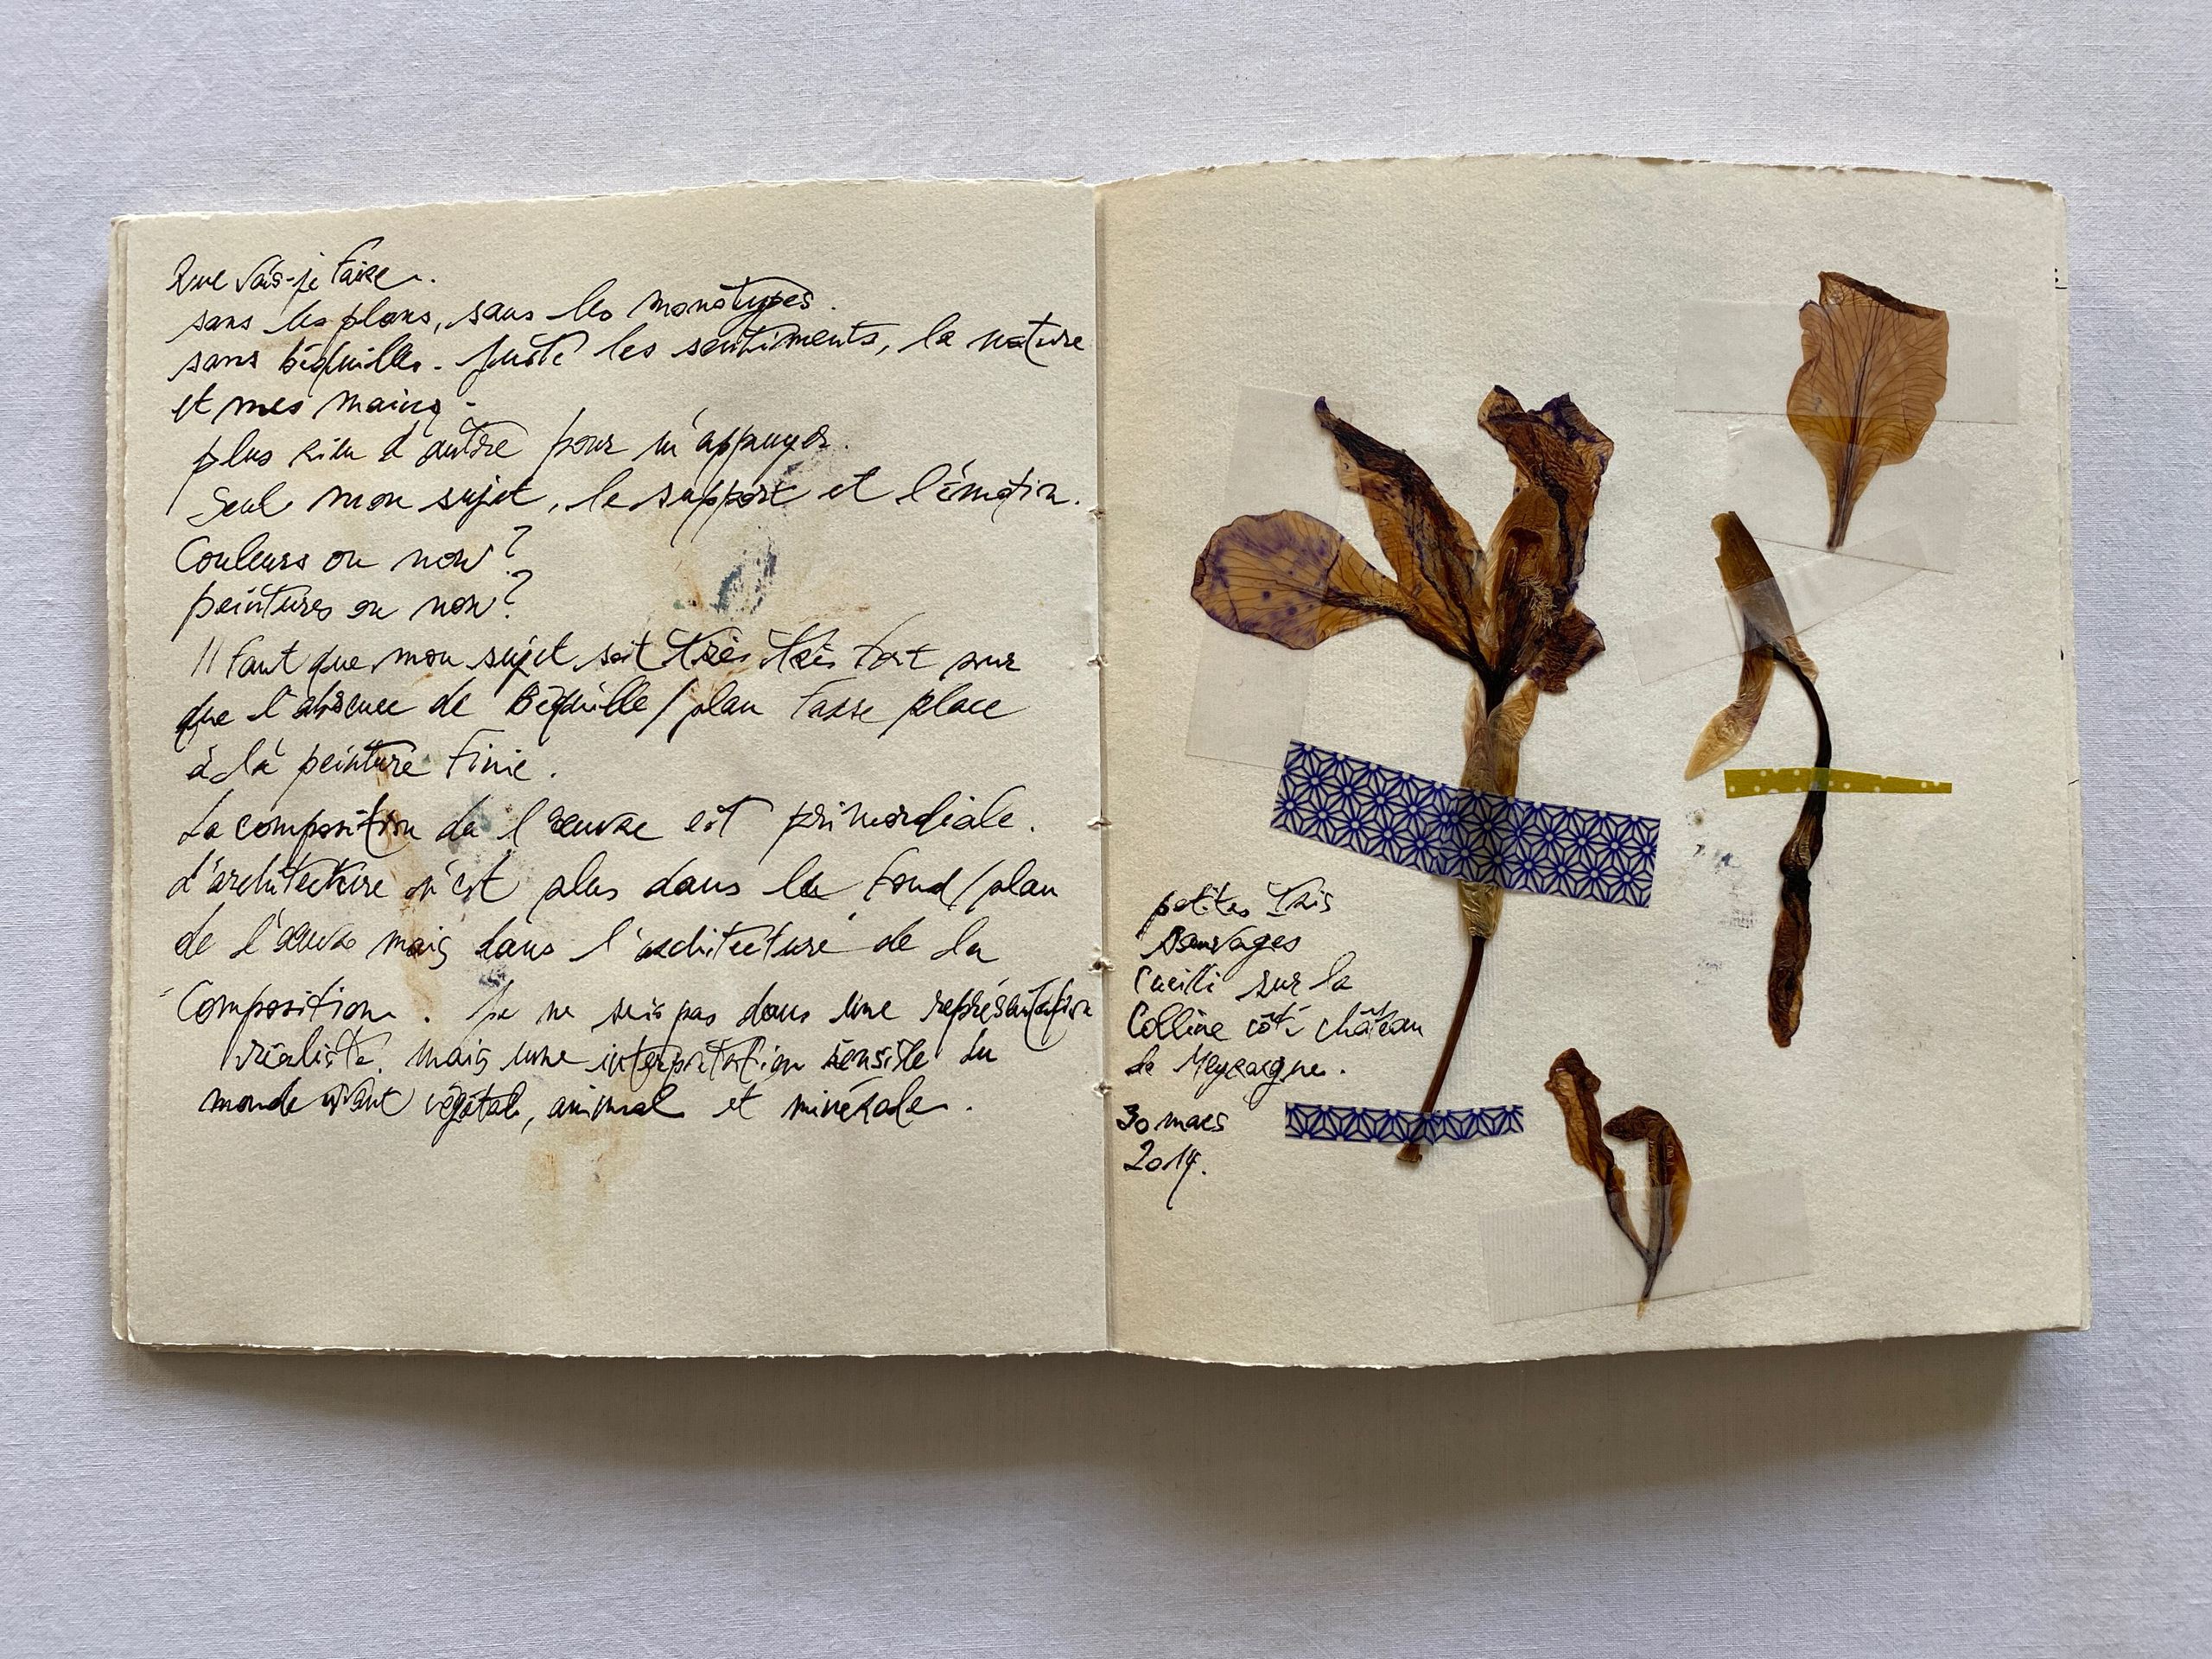 Que vais-je faire.
sans les plans, sans les monotypes.
sans béquilles. Juste les sentiments, la nature
et mes mains.
plus rien d'autre pour m'appuyer.
Seul mon sujet, le support et l'émotion.
Couleurs ou non ?
peintures ou non ?
Il faut que mon sujet soit très très fort pour
que l'absence de Béquille / plan fasse place
à la peinture finie.
La composition de l'œuvre est primordiale.
L'architecture n'est plus dans le fond / plan
de l'œuvre mais dans l'architecture de la
Composition. Je ne suis pas dans une représentation
réaliste. mais une interprétation sensible du
monde vivant végétal, animal et minérale.
petites Iris
Sauvages
Cueilli sur la
Colline côté château
de Meyrargne.
30 mars
2014.